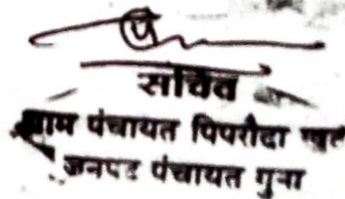 सचिव
ग्राम पंचायत पिपरौदा खुर्द
जनपद पंचायत गुना